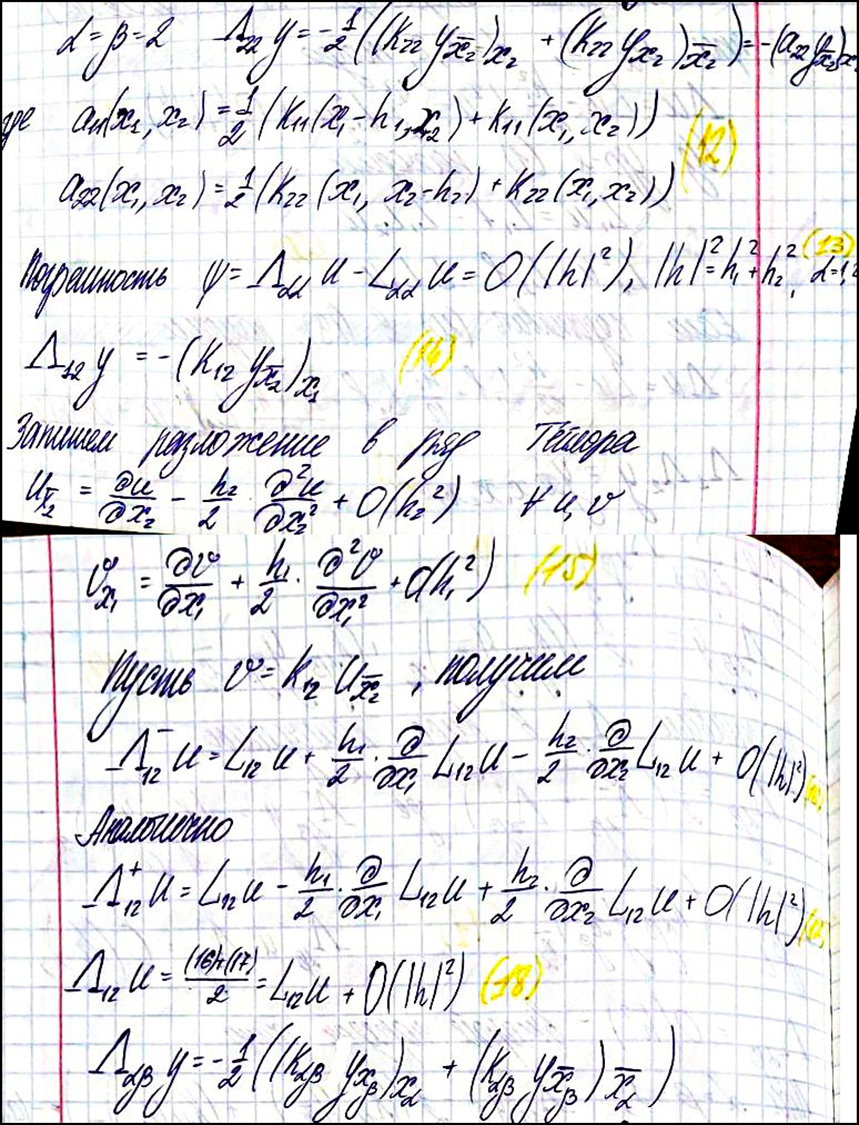 α = β = 2   Λ₂₂ y = -1/2 ((k₂₂ y_x̄₂)_x₂ + (k₂₂ y_x₂)_x̄₂) = -(a₂₂ y_x̄₂)_x
где a₁₁(x₁, x₂) = 1/2 (k₁₁(x₁ - h₁, x₂) + k₁₁(x₁, x₂))
(12)
a₂₂(x₁, x₂) = 1/2 (k₂₂(x₁, x₂ - h₂) + k₂₂(x₁, x₂))
Погрешность ψ = Λ_αα u - L_αα u = O(|h|²), |h|² = h₁² + h₂², α = 1,2 (13)
Λ₁₂ y = -(k₁₂ y_x̄₂)_x₁ (14)
Запишем разложение в ряд Тейлора
u_x̄₂ = ∂u/∂x₂ - h₂/2 · ∂²u/∂x₂² + O(h₂²)   ∀ u, v
v_x₁ = ∂v/∂x₁ + h₁/2 · ∂²v/∂x₁² + O(h₁²) (15)
Пусть v = k₁₂ u_x̄₂, получим
Λ₁₂⁻ u = L₁₂ u + h₁/2 · ∂/∂x₁ L₁₂ u - h₂/2 · ∂/∂x₂ L₁₂ u + O(|h|²) (16)
Аналогично
Λ₁₂⁺ u = L₁₂ u - h₁/2 · ∂/∂x₁ L₁₂ u + h₂/2 · ∂/∂x₂ L₁₂ u + O(|h|²) (17)
Λ₁₂ u = ((16)+(17))/2 = L₁₂ u + O(|h|²) (18)
Λ_αβ y = -1/2 ((k_αβ y_xβ)_xα + (k_αβ y_x̄β)_x̄α)